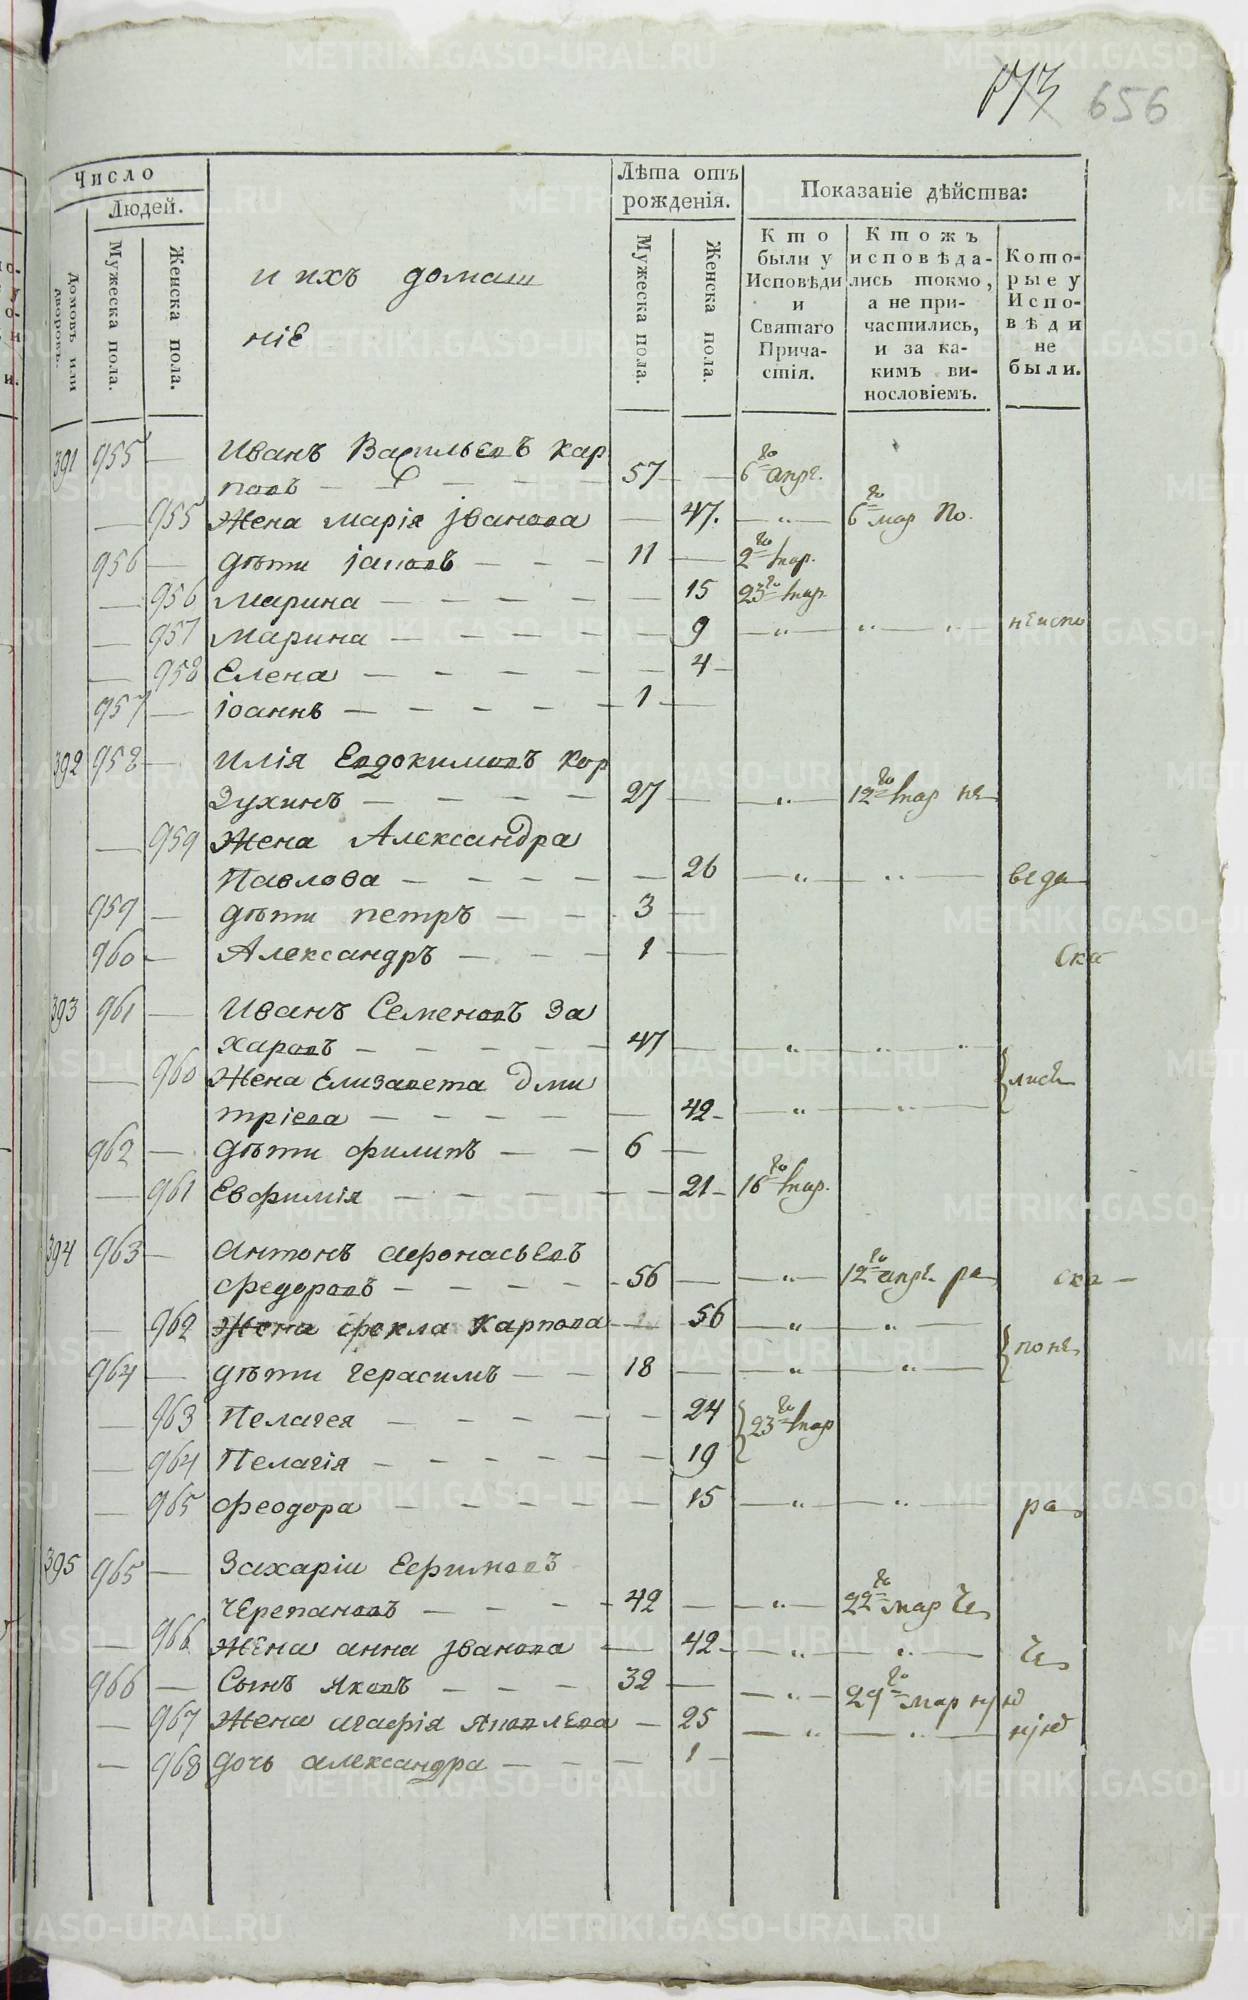 673 656
Число
Людей.
Домовъ или дворовъ.
Мужеска пола.
Женска пола.
и ихъ домаш
ніе
Лѣта отъ
рожденія.
Мужеска пола.
Женска пола.
Показаніе дѣйства:
Кто
были у
Исповѣди
и
Святаго
Прича-
стія.
Ктожъ
исповѣда-
лись токмо,
а не при-
частились,
и за ка-
кимъ ви-
нословіемъ.
Кото-
рые у
Испо-
вѣди
не
были.
391 955 — Иванъ Васильевъ Кар
повъ — — — — 57 — 6го апре.
— 955 Жена Марія Іванова — 47. — „ — 6го мар по.
956 — дѣти Іаковъ — — — 11 — 2го мар.
— 956 Марина — — — — — 15 23го мар.
— 957 Марина — — — — — 9 — „ — „ „ неиспо
— 958 Елена — — — — — 4 —
957 — Іоаннъ — — — — — 1 —
392 958 — Илія Евдокимовъ Кор
зухинъ — — — — 27 — — „ — 12го мар не
— 959 Жена Александра
Павлова — — — — — 26 — „ — „ — веда
959 — дѣти петръ — — 3 —
960 — Александръ — — — 1 — ска
393 961 — Иванъ Семеновъ За
харовъ — — — — — 47 — — „ — „ „
— 960 Жена Елизавета Дми лись
тріева — — — — — 42 — „ — „ —
962 — дѣти филипъ — — 6 —
— 961 Евфимія — — — — — 21 — 16го мар.
394 963 — Антонъ Афонасьевъ
федоровъ — — — — 56 — — „ — 12го апре. ра ска —
— 962 Жена фекла Карпова — 56 — „ — „ —
964 — дѣти герасимъ — — 18 — — „ — „ — поне
— 963 Пелагея — — — — — 24 23го мар
— 964 Пелагія — — — — — 19
— 965 феодора — — — — — 15 — „ — „ — ра
395 965 — Захаріи Ефимовъ
Черепановъ — — — — 42 — — „ — 22го мар Че
— 966 Жена анна Іванова — 42 — „ — „ — Че
966 — Сынъ Яковъ — — — 32 — — „ — 29го мар нуж
— 967 Жена агафія Яковлева — 25 — „ — „ — нуж
— 968 дочь александра — — — — 1 —